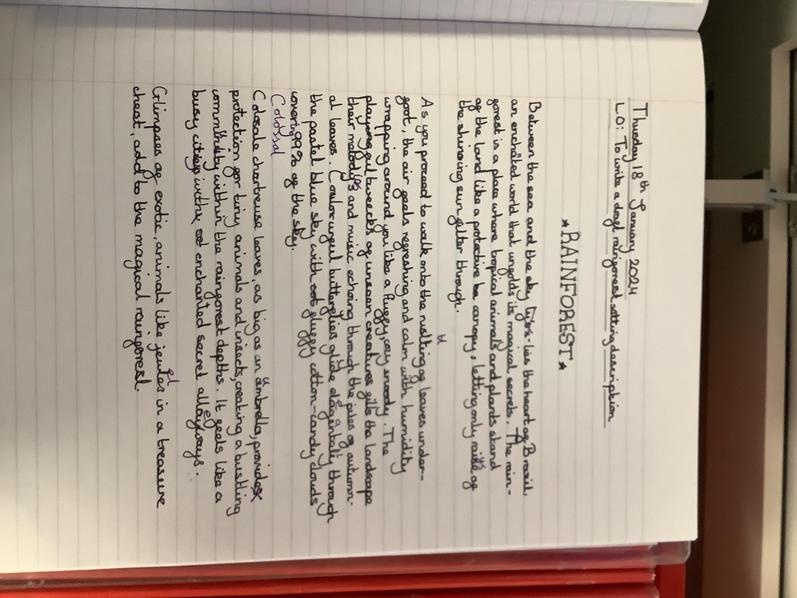 Thursday 18th January 2024
L.O: To write a draft rainforest setting description
★RAINFOREST★
Between the sea and the sky lies the heart of Brazil,
an enchated world that unfolds its magical secrets. The rain-
forest is a place where tropical animals and plants stand
of the land like a protective canopy, letting only rays of
the shinning sun filter through.
As you proceed to walk onto the rustling of leaves under-
foot, the air feels refreshing and calm with humidity
wrapping around you like a fluffy, cosy snoody. The
playful tweecks of unseen creatures fills the landscape
their melodys and music echoing through the piles of autumn-
al leaves. Colourful butterflies glide elegantly through
the pastel blue sky with fluffy cotton-candy clouds
covering 99% of the sky.
Colossal
Colosale chartreuse leaves, as big as an umbrella, provides
protection for tiny animals and insects, creating a bustling
community within the rainforest depths. It feels like a
busy city with enchanted secret alleyways.
Glimpses of exotic animals like jewels in a treasure
chest, add to the magical rainforest.